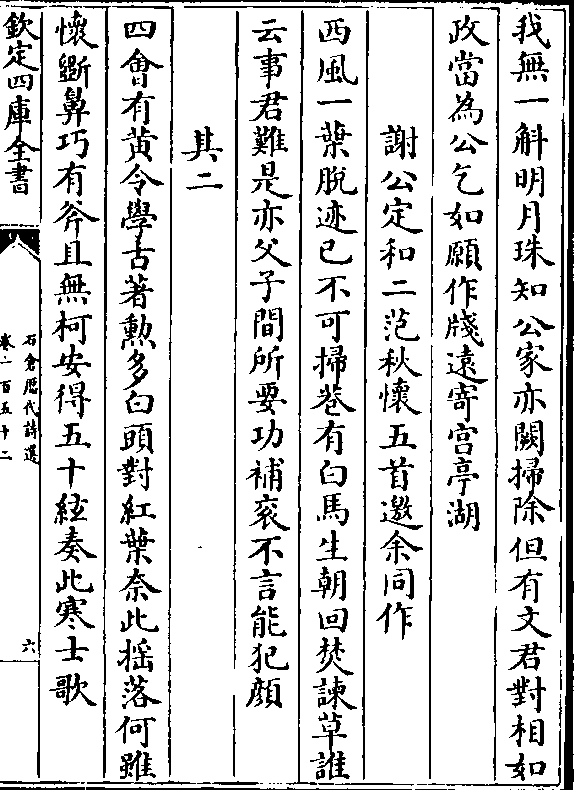 我無一斛明月珠知公家亦闕掃除但有文君對相如
政當為公乞如願作牋遠寄宫亭湖
謝公定和二范秋懷五首邀余同作
西風一葉脫迹已不可掃巷有白馬生朝回焚諫草誰
云事君難是亦父子間所要功補衮不言能犯顔
其二
四㑹有黄令學古著勲多白頭對紅葉奈此揺落何雖
懷斵鼻巧有斧且無柯安得五十絃奏此寒士歌
欽定四庫全書
石倉歴代詩選
卷一百五十二
六